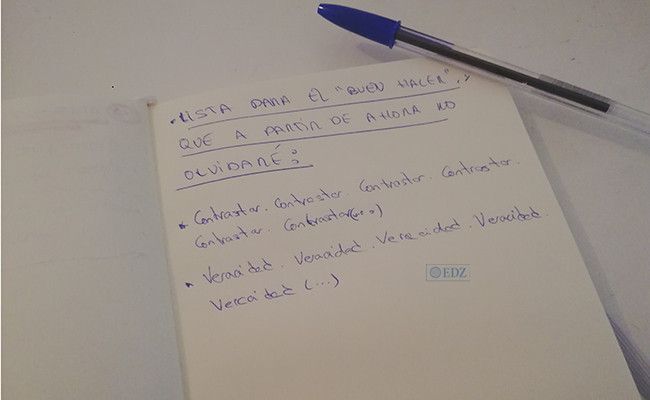 . LISTA PARA EL "BUEN HACER", Y
QUE A PARTIR DE AHORA NO
OLVIDARÉ:
* Contrastar. Contrastar. Contrastar. Contrastar.
Contrastar. Contrastar (...)
* Veracidad. Veracidad. Veracidad. Veracidad.
Veracidad (...)
EDZ